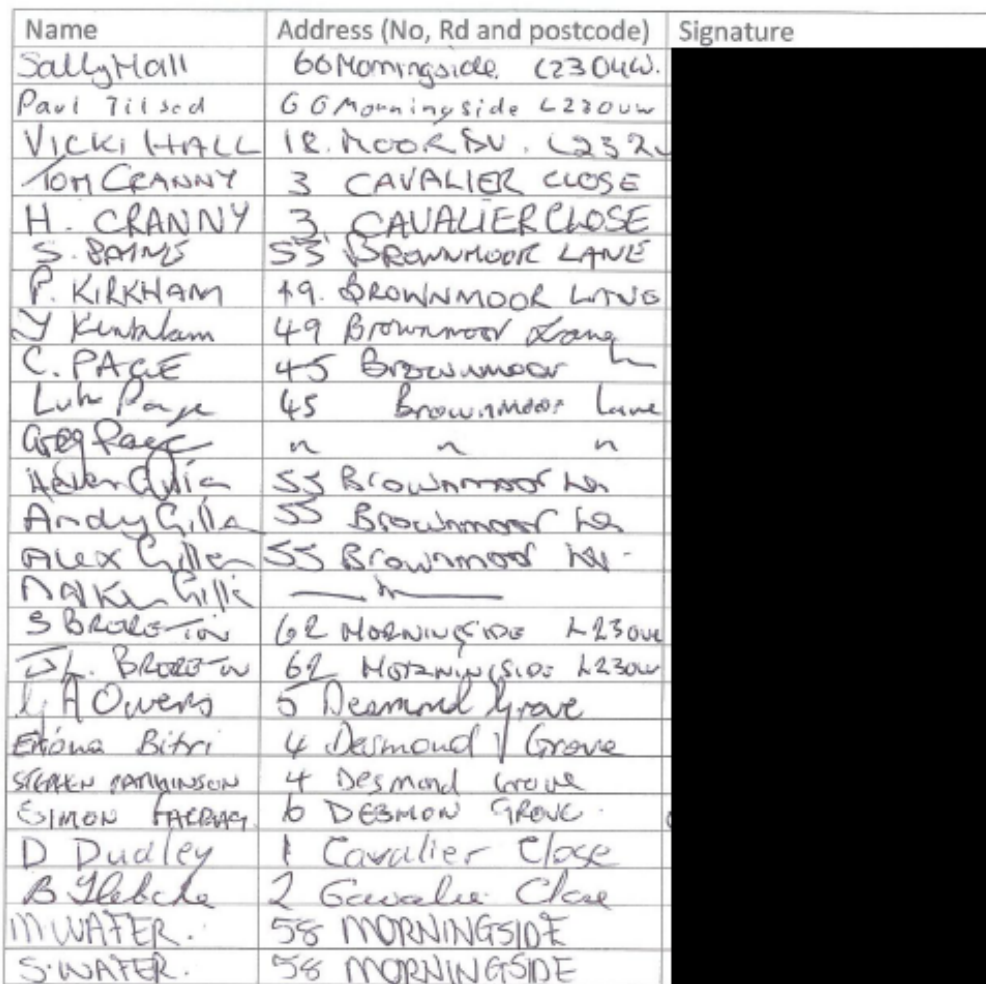 Name Address (No, Rd and postcode) Signature
Sally Hall 66 Morningside. L23 0UW.
Paul Tilsed 66 Morningside L230uw
VICKI HALL 18. MOOR DV. L23 2U
TOM CRANNY 3 CAVALIER CLOSE
H. CRANNY 3. CAVALIER CLOSE
S. BAINS 53 BROWNMOOR LANE
P. KIRKHAM 49. BROWNMOOR LANE
Y 49 Brownmoor Lane
C. PAGE 45 Brownmoor
Page 45 Brownmoor Lane
Greg Page " " "
Helen 55 Brownmoor Ln
Andy 55 Brownmoor Ln
Alex 55 Brownmoor Ln
S 62 MORNINGSIDE L230UW
62 MORNINGSIDE L230UW
G A Owens 5 Desmond Grove
Bitri 4 Desmond Grove
STEPHEN PARKINSON 4 Desmond Grove
SIMON 6 DESMON GROVE.
D Dudley 1 Cavalier Close
B 2 Cavalier Close
M WAFER. 58 MORNINGSIDE
S. WAFER. 58 MORNINGSIDE